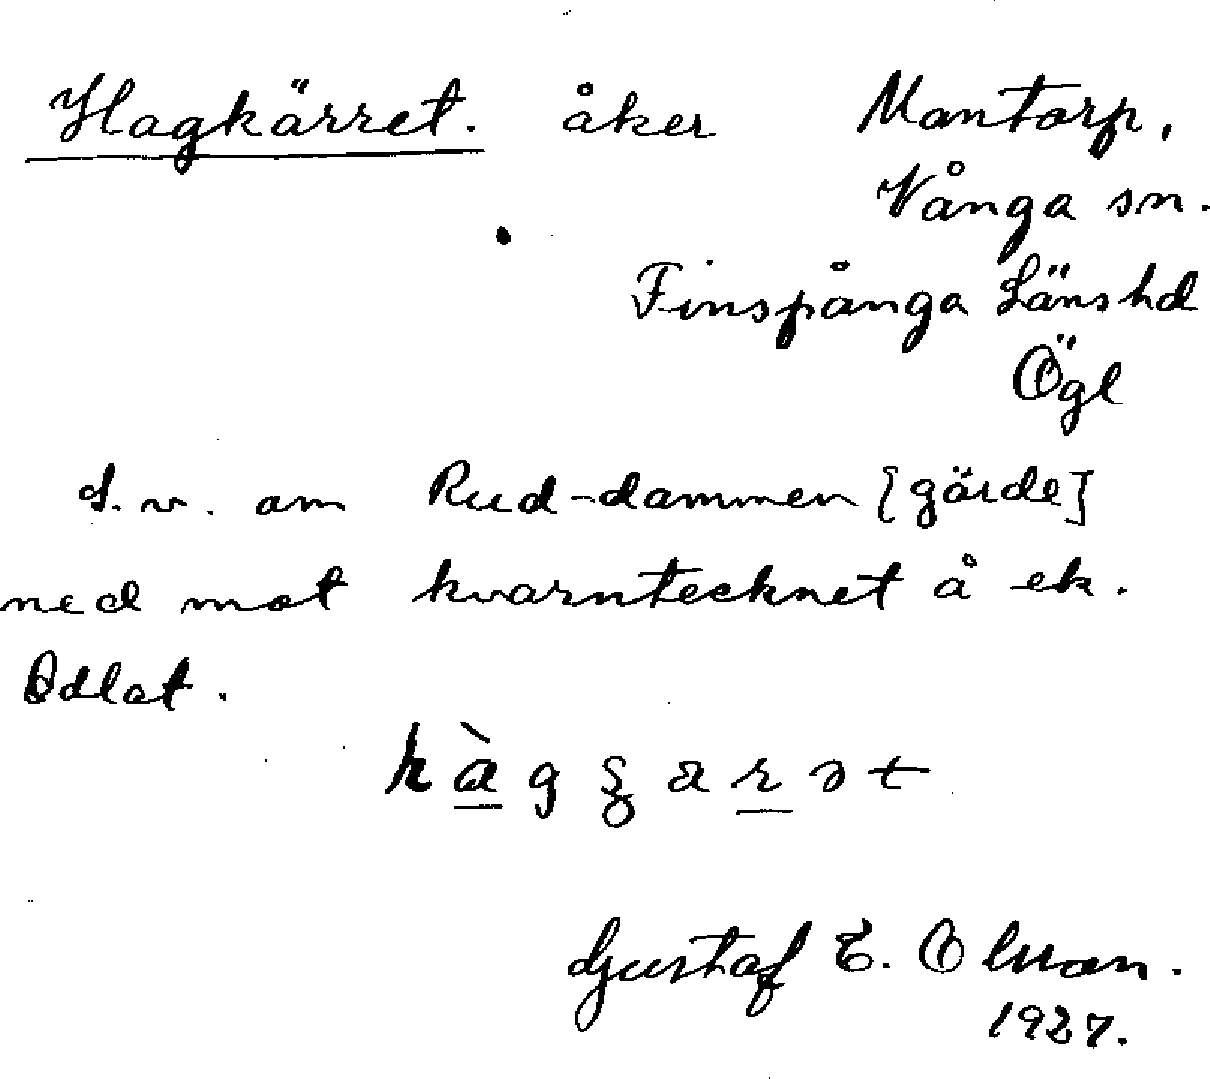 Hagkärret. åker Mantorp,
Vånga sn.
Finspånga Länshd
Ögl
S.v. om Rud-dammen [gärde]
ned mot kvarntecknet å ek.
Odlat.
Gustaf E. Olsson.
1927.